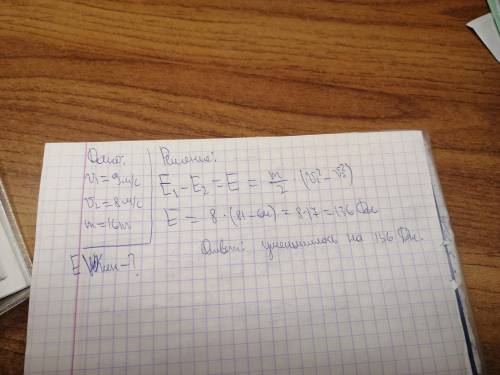 Дано:
v₁ = 9 м/с
v₂ = 8 м/с
m = 16 кг
E кин - ?
Решение:
E₁ - E₂ = E = m/2 (v₁² - v₂²)
E = 8 · (81 - 64) = 8·17 = 136 Дж
Ответ: уменьшилось на 136 Дж.